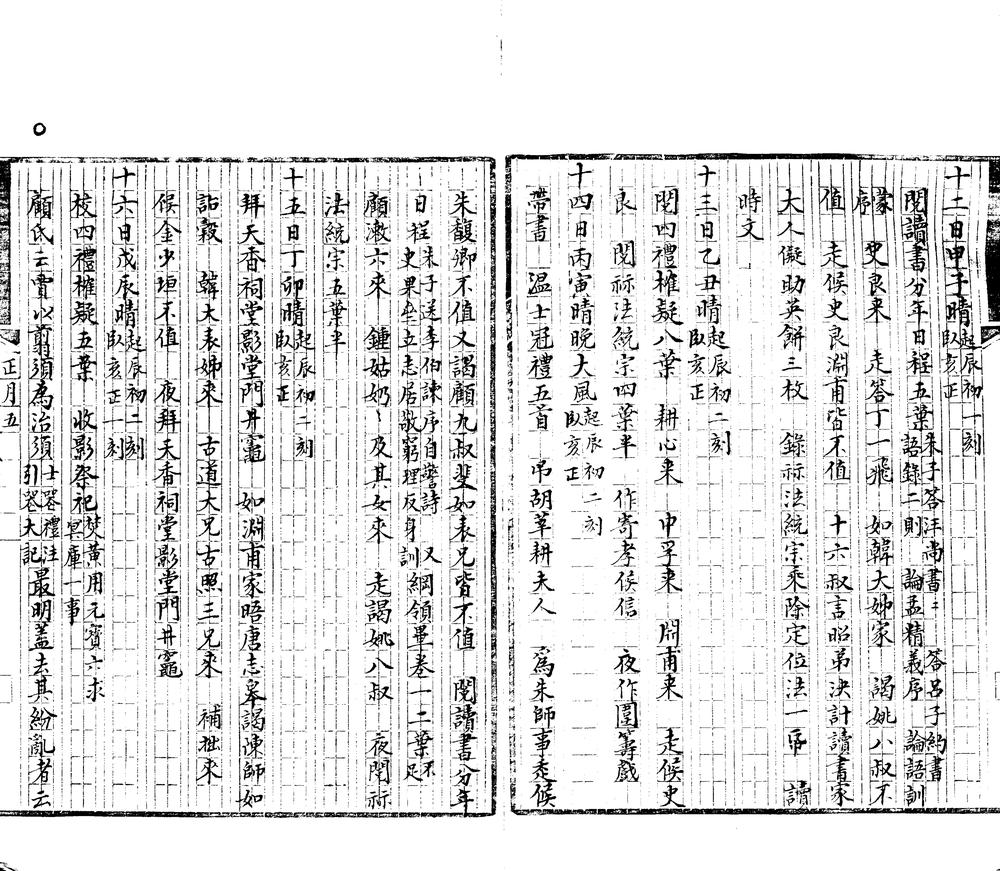 十二日甲子晴起辰初一刻臥亥正
閱讀書分年日程五葉朱子答汪尚書書 答呂子約書語錄二則 論孟精義序 論語訓
蒙序 史良来 走答丁一飛 如韓大姊家 謁姚八叔不
值 走候史良淵甫皆不值 十六叔言昭弟決計讀書家
大人儗助英餅三枚 錄祘法統宗乘除定位法一帋 讀
時文
十三日乙丑晴起辰初二刻臥亥正
閱四禮榷疑八葉 耕心来 中孚来 淵甫来 走候史
良 閱祘法統宗四葉半 作寄孝侯信 夜作圍籌戲
十四日丙寅晴晚大風起辰初二刻臥亥正
帶書 温士冠禮五首 弔胡莘耕夫人 為朱師事走候
朱馥卿不值又謁顧九叔斐如表兄皆不值 閱讀書分年
日程朱子送李伯諫序自警詩 又史果堂立志居敬窮理反身訓綱領畢卷一二葉不足
顧漱六来 鍾姑奶〻及其女来 走謁姚八叔 夜閱祘
法統宗五葉半
十五日丁卯晴起辰初二刻臥亥正
拜天香祠堂影堂門井竈 如淵甫家晤唐志皋謁諫師如
詒穀 韓大表姊来 古道大兄古照三兄来 補拙来
候金少垣不值 夜拜天香祠堂影堂門井竈
十六日戊辰晴起辰初二刻臥亥正一刻
校四禮榷疑五葉 收影祭祀焚黃用元寶六求冥庫一事
顧氏云賈以翦須為治須士喪禮注引喪大記最明蓋去其紛亂者云
正月五